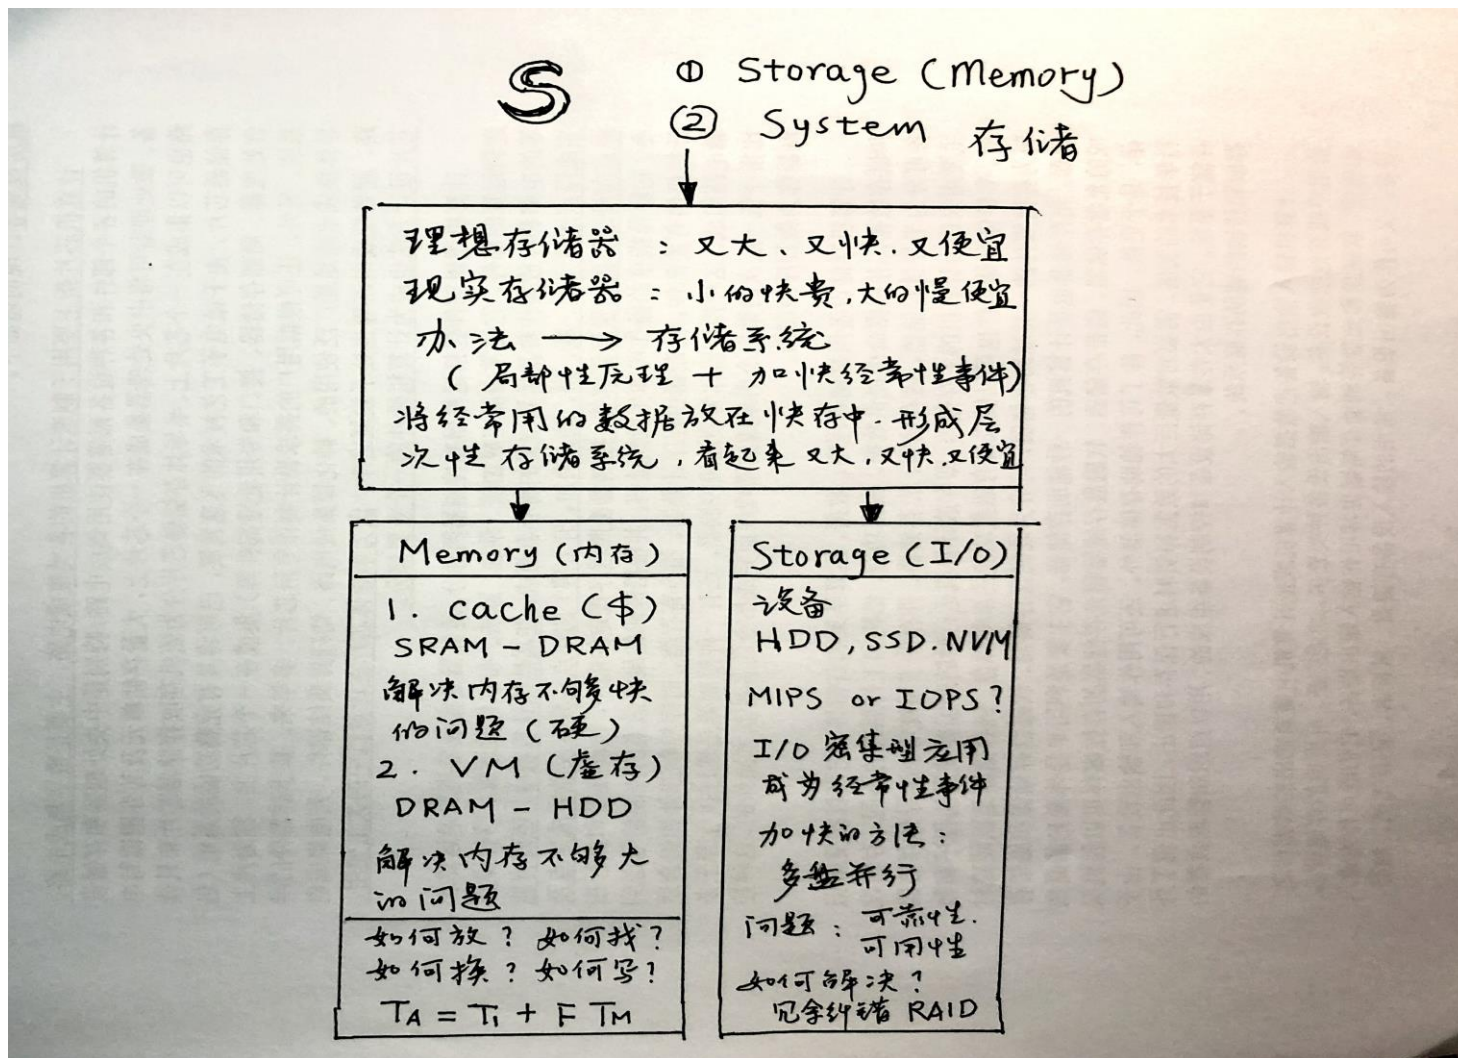 S
① Storage (Memory)
② System 存储
理想存储器 : 又大、又快.又便宜
现实存储器 : 小的快贵,大的慢便宜
办法 → 存储系统
( 局部性原理 + 加快经常性事件)
将经常用的数据放在快存中.形成层
次性存储系统,看起来又大,又快.又便宜
Memory (内存)
1. cache ($)
SRAM - DRAM
解决内存不够快
的问题 (硬)
2. VM (虚存)
DRAM - HDD
解决内存不够大
的问题
如何放? 如何找?
如何换? 如何写?
TA = T1 + F TM
Storage (I/O)
设备
HDD, SSD. NVM
MIPS or IOPS?
I/O 密集型应用
成为经常性事件
加快的方法:
多盘并行
问题: 可靠性.
可用性
如何解决?
冗余纠错 RAID